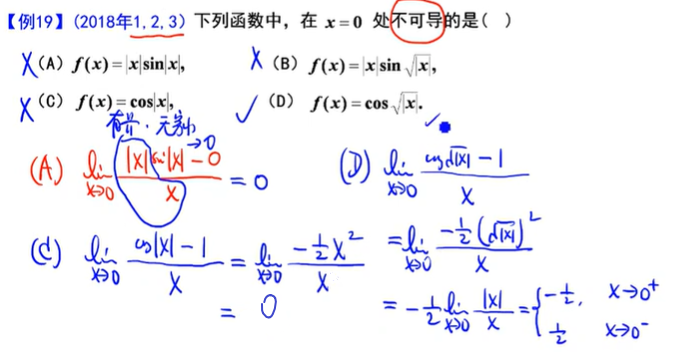 【例19】(2018年1,2,3) 下列函数中，在 x=0 处不可导的是( )
X (A) f(x)=|x|sin|x|, X (B) f(x)=|x|sin√|x|,
X (C) f(x)=cos|x|, ✓ (D) f(x)=cos√|x|.
有界·无穷小
(A) lim x→0 (|x|sin|x|→0 − 0)/x = 0 (D) lim x→0 (cos√|x| − 1)/x
(C) lim x→0 (cos|x| − 1)/x = lim x→0 (−½x²)/x = lim x→0 (−½(√|x|)²)/x
= 0 = −½ lim x→0 |x|/x = { −½, x→0⁺
½ x→0⁻